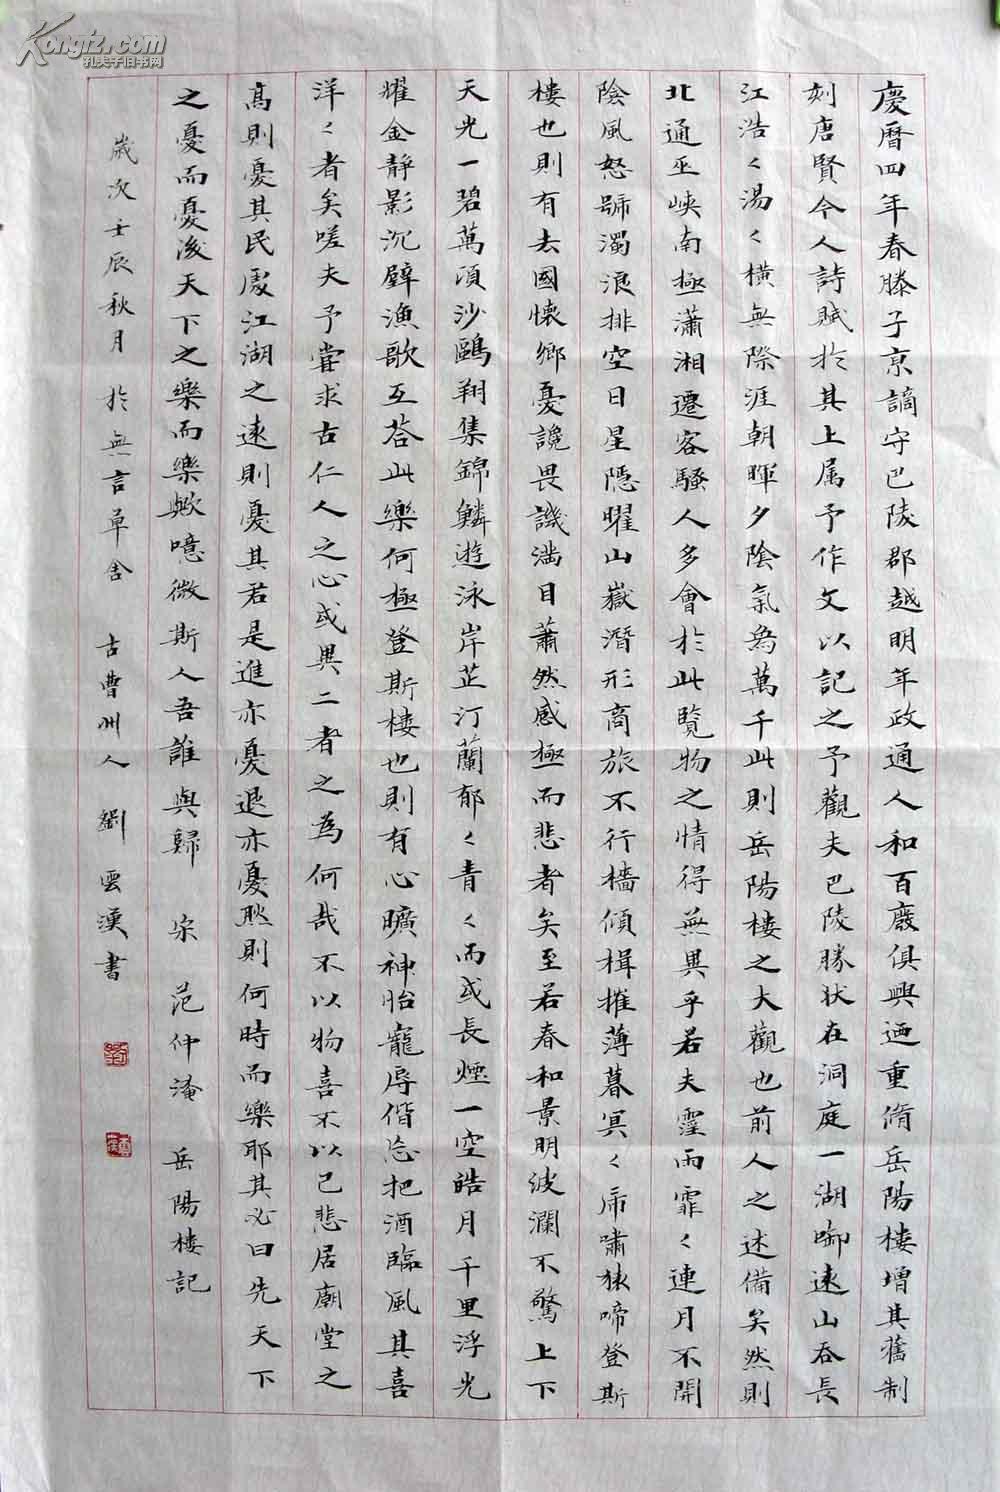 慶曆四年春滕子京謫守巴陵郡越明年政通人和百廢俱興迺重脩岳陽樓增其舊制
刻唐賢今人詩賦於其上属予作文以記之予觀夫巴陵勝状在洞庭一湖啣遠山吞長
江浩〻湯〻橫無際涯朝暉夕陰氣象萬千此則岳陽樓之大觀也前人之述備矣然則
北通巫峽南極瀟湘遷客騷人多會於此覽物之情得無異乎若夫霪雨霏〻連月不開
陰風怒號濁浪排空日星隱曜山嶽潛形商旅不行檣傾楫摧薄暮冥〻虎嘯猿啼登斯
樓也則有去國懷鄉憂讒畏譏滿目蕭然感極而悲者矣至若春和景明波瀾不驚上下
天光一碧萬頃沙鷗翔集錦鱗遊泳岸芷汀蘭郁〻青〻而或長煙一空皓月千里浮光
耀金靜影沉壁漁歌互答此樂何極登斯樓也則有心曠神怡寵辱偕忘把酒臨風其喜
洋〻者矣嗟夫予嘗求古仁人之心或異二者之為何哉不以物喜不以己悲居廟堂之
高則憂其民處江湖之遠則憂其君是進亦憂退亦憂然則何時而樂耶其必曰先天下
之憂而憂後天下之樂而樂歟噫微斯人吾誰與歸 宋 范仲淹 岳陽樓記
歲次壬辰秋月 於無言草舍 古曹州人 劉雲漢書
Kongfz.com
孔夫子旧书网